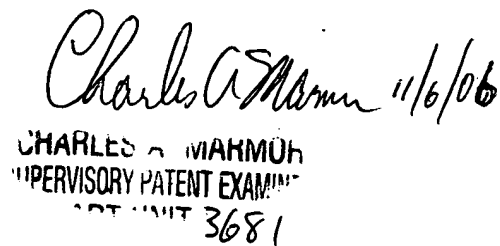 Charles A Marmor 11/6/06
CHARLES A MARMOR
SUPERVISORY PATENT EXAMINER
ART UNIT 3681